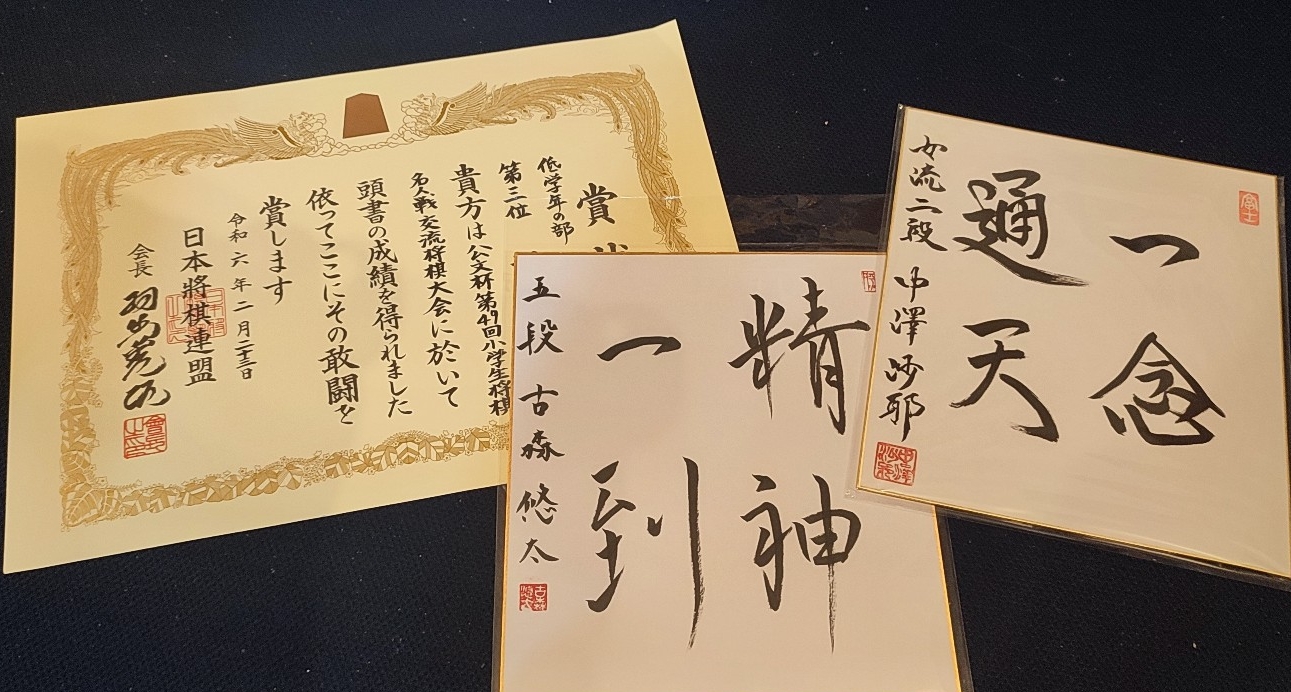 賞
低学年の部
第三位
貴方は公文杯第49回小学生将棋
名人戦交流将棋大会に於いて
頭書の成績を得られました
依ってここにその敢闘を
賞します
令和六年二月二十三日
日本将棋連盟
会長 羽生善治
會長之印
精神
一到
五段 古森悠太
古森悠太
一念
通天
女流二段 中澤沙耶
中澤沙耶